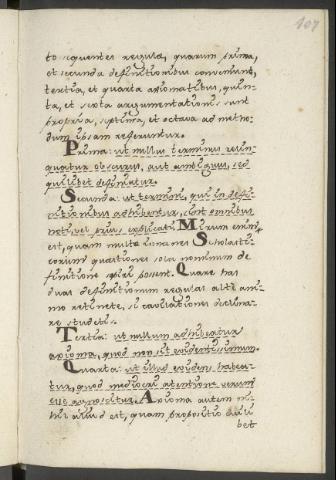 107
to sequentes regula, quarum prima,
et secunda definitionibus conveniunt,
tertia, et quarta axiomatibus, quin-
ta, et sexta argumentationis sunt
propria, septima, et octava ad metho-
dum ipsam referuntur.
Prima: ut nullus terminus relin-
quatur obscurus, aut ambiguus, sed
quilibet definiatur.
Secunda: ut termini, qui in defi-
nitionibus adhibentur, sint omnibus
noti, vel prius explicati. Mirum enim
est, quam multæ inanes Scholasti-
corum quæstiones sola nominum de-
finitione possent. Quare has
duas definitionum regulas alte ani-
mo retinete, si cavillationes declina-
re studetis.
Tertia: ut nullum adhibeatur
axioma, quod non sit evidentissimum.
Quarta: ut illud evidens habea-
tur, quod mediocri atentione verum
esse agnoscitur. Axioma autem ni-
hil aliud est, quam propositio
bet